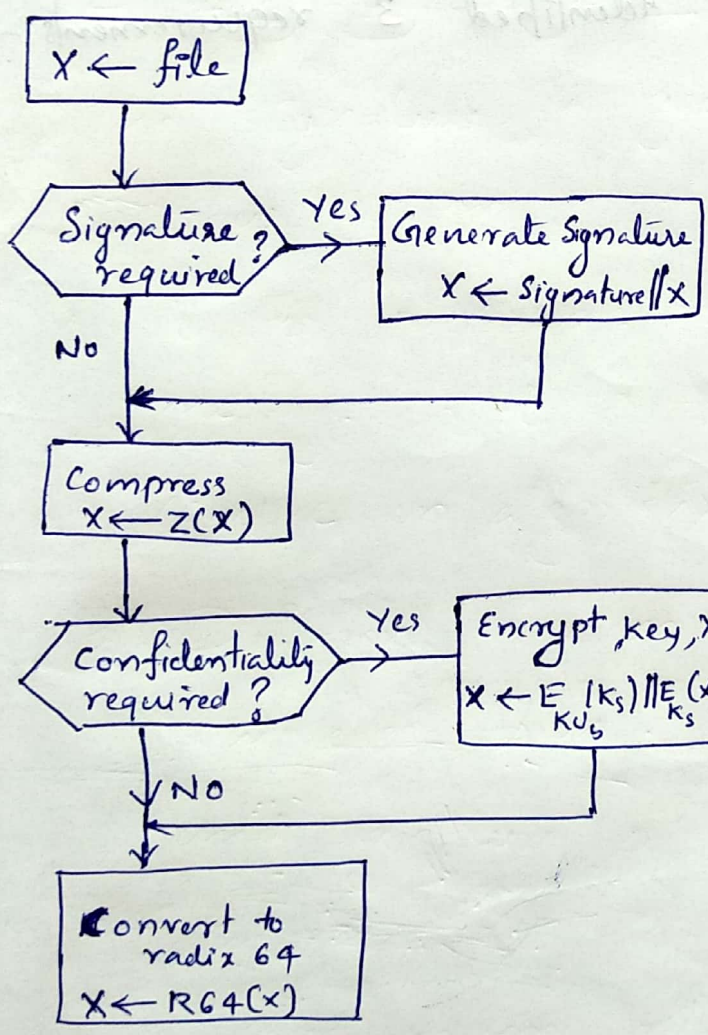 X ← file
Signature
required?
Yes
Generate Signature
X ← Signature||X
No
Compress
X ← Z(X)
Confidentiality
required?
Yes
Encrypt, key, X
X ← E_KU_b (K_s) || E_K_s (X
NO
Convert to
radix 64
X ← R64(X)